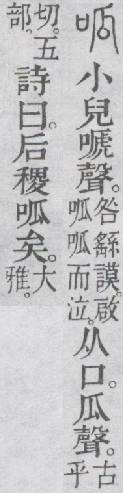 呱 小兒嗁聲。咎繇謨。啟呱呱而泣。从口。瓜聲。古乎
切。五部。詩曰。后稷呱矣。大雅。